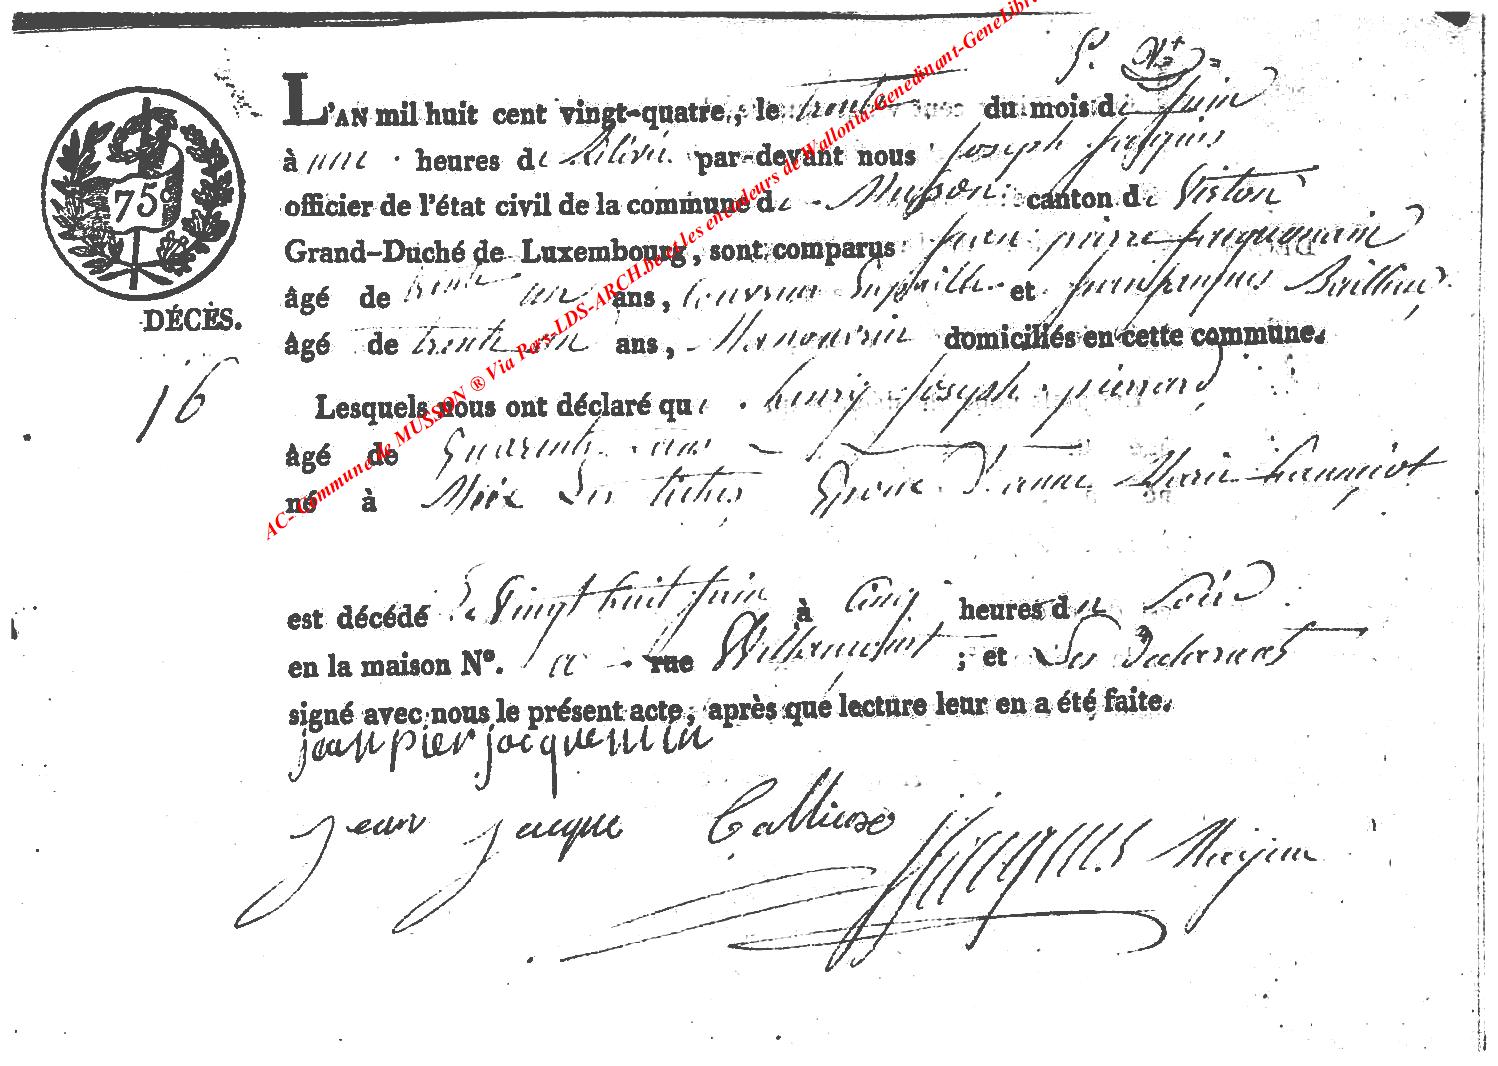 75
DÉCÈS.
16
L'AN mil huit cent vingt-quatre, le trente du mois de Juin
à une heures de relevée par-devant nous Joseph Jacques
officier de l'état civil de la commune de Musson canton de Virton
Grand-Duché de Luxembourg, sont comparus Jean pierre Jacquemain
âgé de trente un ans, et jean jacques
âgé de trente cinq ans, Manouvrier domiciliés en cette commune.
Lesquels nous ont déclaré que henry Joseph pierrard
âgé de quarente ans
né à Meix Epoux d'anne Marie
est décédé Le Vingt huit Juin à Cinq heures du Soir
en la maison N°. rue Willancourt ; et Les Déclarants
signé avec nous le présent acte, après que lecture leur en a été faite.
jean pier jacquemin
Jean Jacque
J Jacques Mayeur
AC- Commune de MUSSON ® Via Pars-LDS-ARCH.be et les encodeurs de Wallonia-Genedinant-GeneLibre